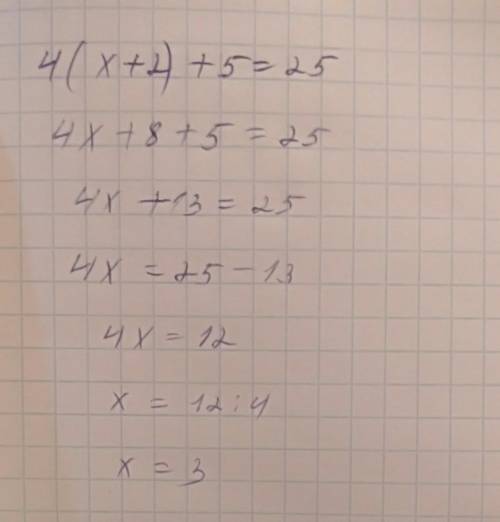 4(x+2)+5=25
4x+8+5=25
4x+13=25
4x=25-13
4x=12
x=12:4
x=3